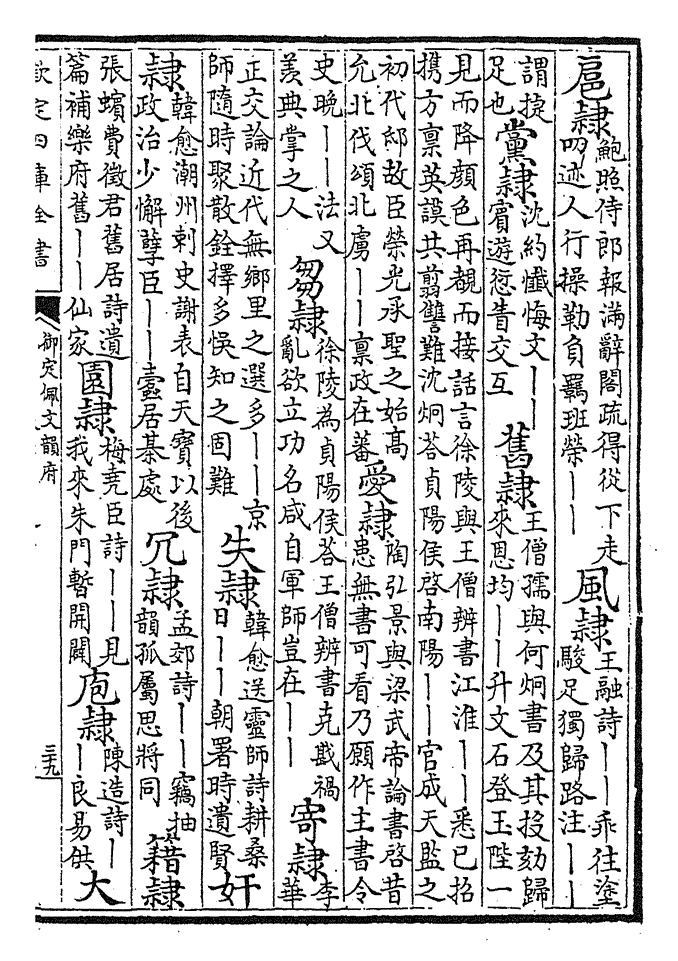 扈隸鮑照侍郎報滿辭閣疏得從下走叨迹人行操勒負羈班榮——風隸王融詩——乘往塗駿足獨歸路注——
謂捷足也黨隸沈約懺悔文——賓遊愆眚交互舊隸王僧孺與何炯書及其投劾歸來恩均——升文石登玉陛一
見而降顔色再覩而接話言徐陵與王僧辨書江淮——悉已招携方禀英謨共翦讐難沈炯荅貞陽侯啓南陽——官成天監之
初代邸故臣榮光承聖之始高允北伐頌北虜——禀政在蕃愛隸陶弘景與梁武帝論書啓昔患無書可看乃願作主書令
史晚——法又羨典掌之人芻隸徐陵為貞陽侯荅王僧辨書克戡禍亂欲立功名咸自軍師豈在——寄隸李華
正交論近代無鄉里之選多——京師隨時聚散銓擇多悞知之固難失隸韓愈送靈師詩耕桑日——朝署時遺賢奸
隸韓愈潮州刺史謝表自天寶以後政治少懈孽臣——蠧居棊處冗隸孟郊詩——竊抽韻孤屬思將同籍隸
張蠙費徵君舊居詩遺篇補樂府舊——仙家園隸梅堯臣詩——見我來朱門暫開闢庖隸陳造詩——良易供大
欽定四庫全書
御定佩文韻府
三九